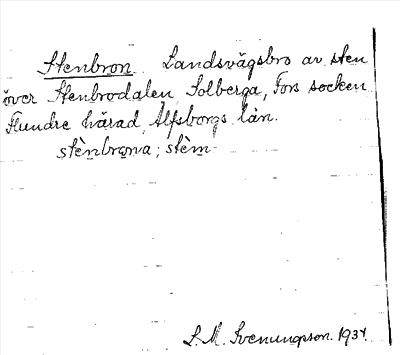 Stenbron. Landsvägsbro av sten
över Stenbrodalen, Solberga, Fors socken
Flundre härad, Älfsborgs län.
stènbrona; stèm-
S. M. Svenungson. 1934.